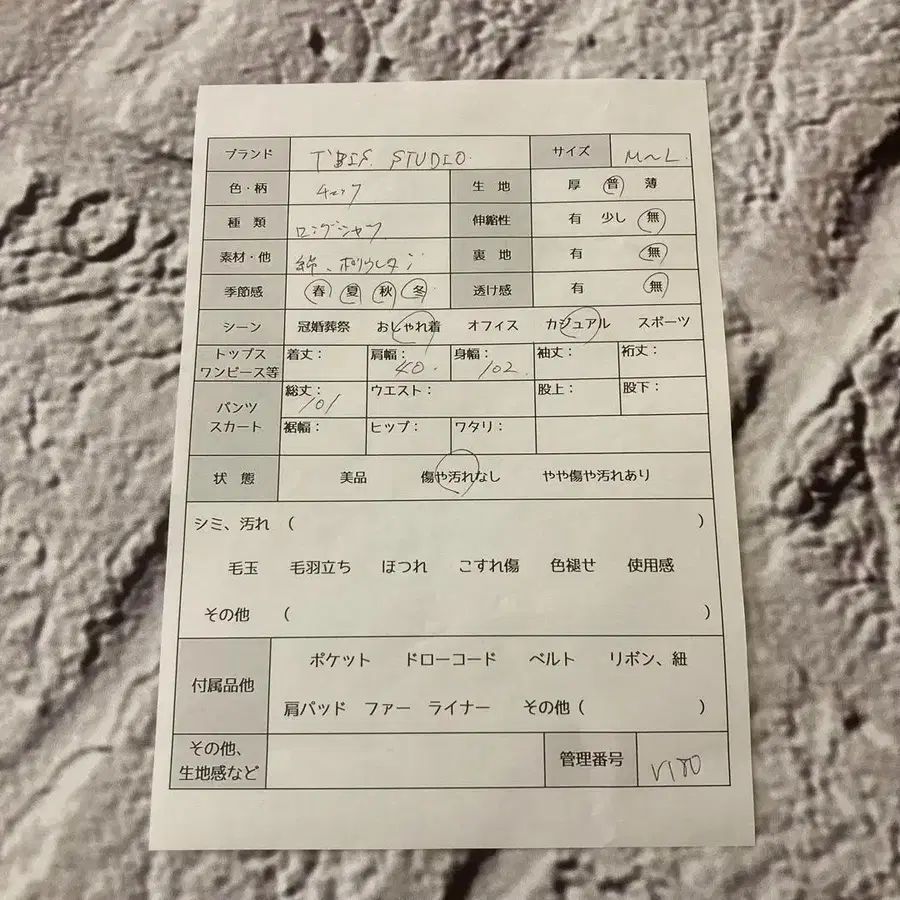 ブランド T'BIS. STUDIO. サイズ M～L.
色・柄 生 地 厚 普 薄
種 類 ロングシャツ 伸縮性 有 少し 無
素材・他 綿、ポリウレタン 裏 地 有 無
季節感 春 夏 秋 冬 透け感 有 無
シーン 冠婚葬祭 おしゃれ着 オフィス カジュアル スポーツ
トップス
ワンピース等 着丈： 肩幅： 40. 身幅： 102. 袖丈： 裄丈：
パンツ
スカート 総丈： 101 ウエスト： 股上： 股下：
裾幅： ヒップ： ワタリ：
状 態 美品 傷や汚れなし やや傷や汚れあり
シミ、汚れ （ ）
毛玉 毛羽立ち ほつれ こすれ傷 色褪せ 使用感
その他 （ ）
付属品他 ポケット ドローコード ベルト リボン、紐
肩パッド ファー ライナー その他（ ）
その他、
生地感など 管理番号